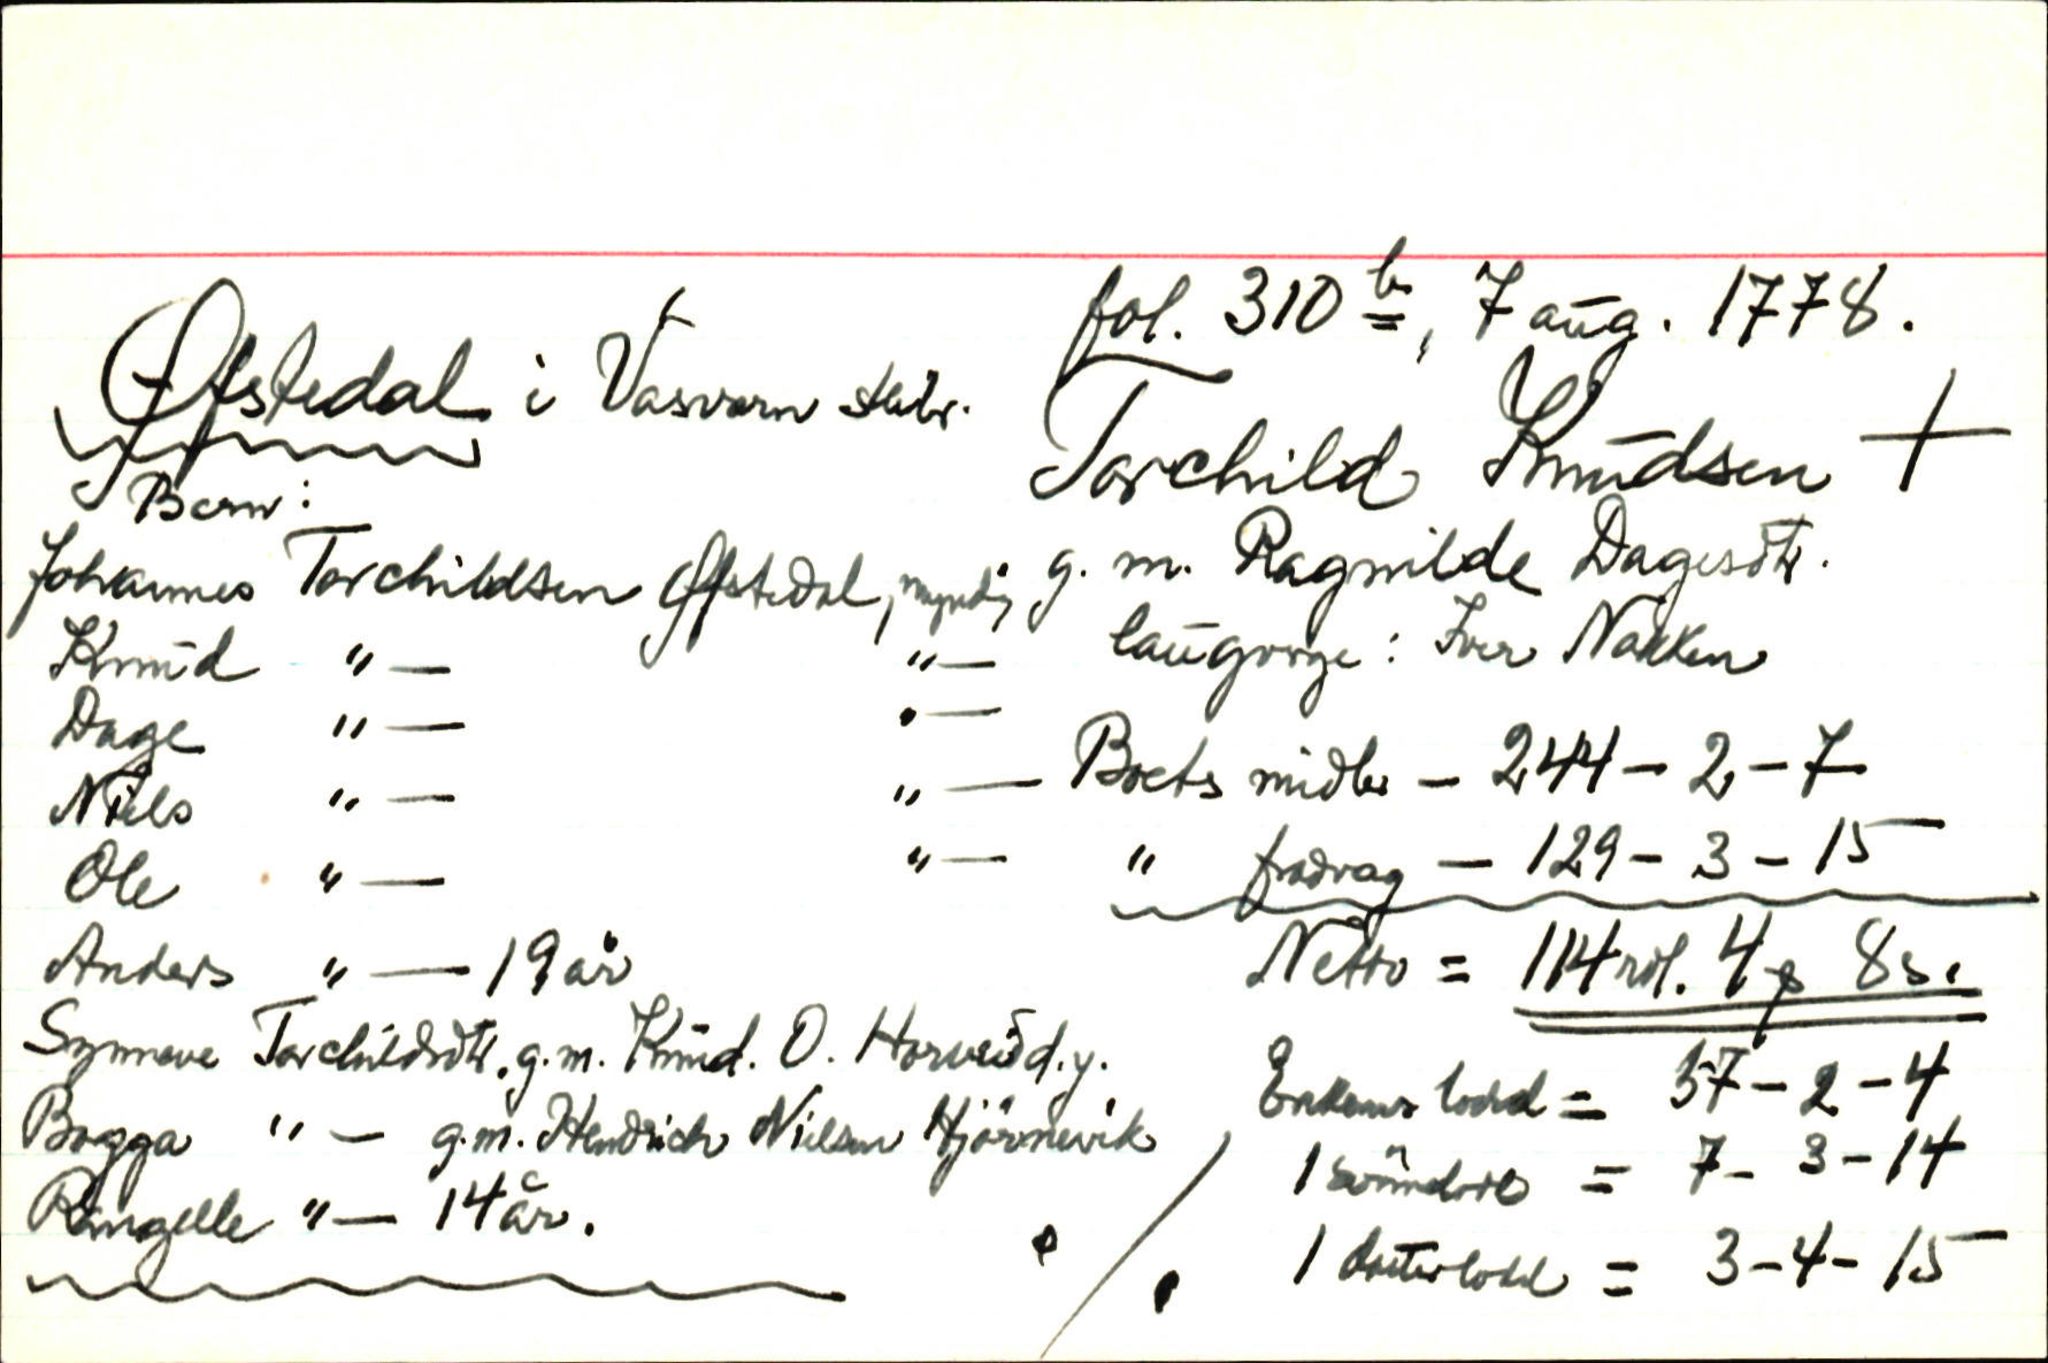 fol. 310 b, 7 aug. 1778.
Øfstedal i Vasværn skibr.
Torchild Knudsen +
g. m. Ragnilde Dagesdtr.
laugvorge: Iver Nakken
Boets midler - 244 - 2 - 7
" fradrag - 129 - 3 - 15
Netto = 114 rdl. 4 ƥ 8 s.
Enkens lodd = 57 - 2 - 4
1 = 7 - 3 - 14
1 datterlodd = 3 - 4 - 15
Børn:
Johannes Torchildsen Øfstedal, myndig
Knud " — " —
Dage " — " —
Niels " — " —
Ole " — " —
Anders " — 19 år
Synneve Torchildsdtr. g. m. Knud. O. d.y.
Bogga " — g.m. Hendrich Nielsen Hjörnevik
Rangelle " — 14 år.